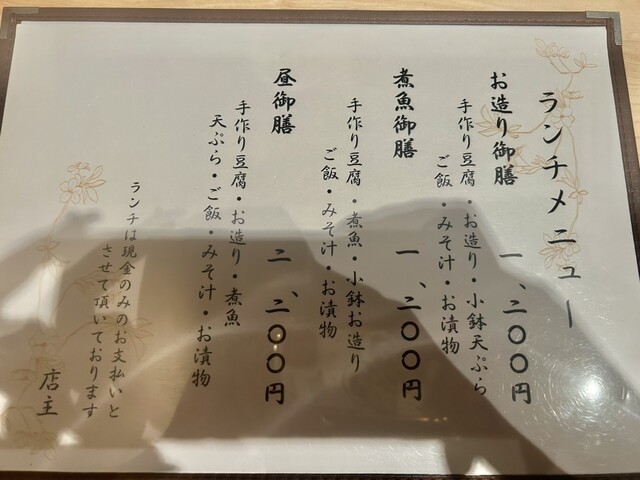 ランチメニュー
お造り御膳 一、二〇〇円
手作り豆腐・お造り・小鉢天ぷら
ご飯・みそ汁・お漬物
煮魚御膳 一、二〇〇円
手作り豆腐・煮魚・小鉢お造り
ご飯・みそ汁・お漬物
昼御膳 二、二〇〇円
手作り豆腐・お造り・煮魚
天ぷら・ご飯・みそ汁・お漬物
ランチは現金のみのお支払いと
させて頂いております
店主